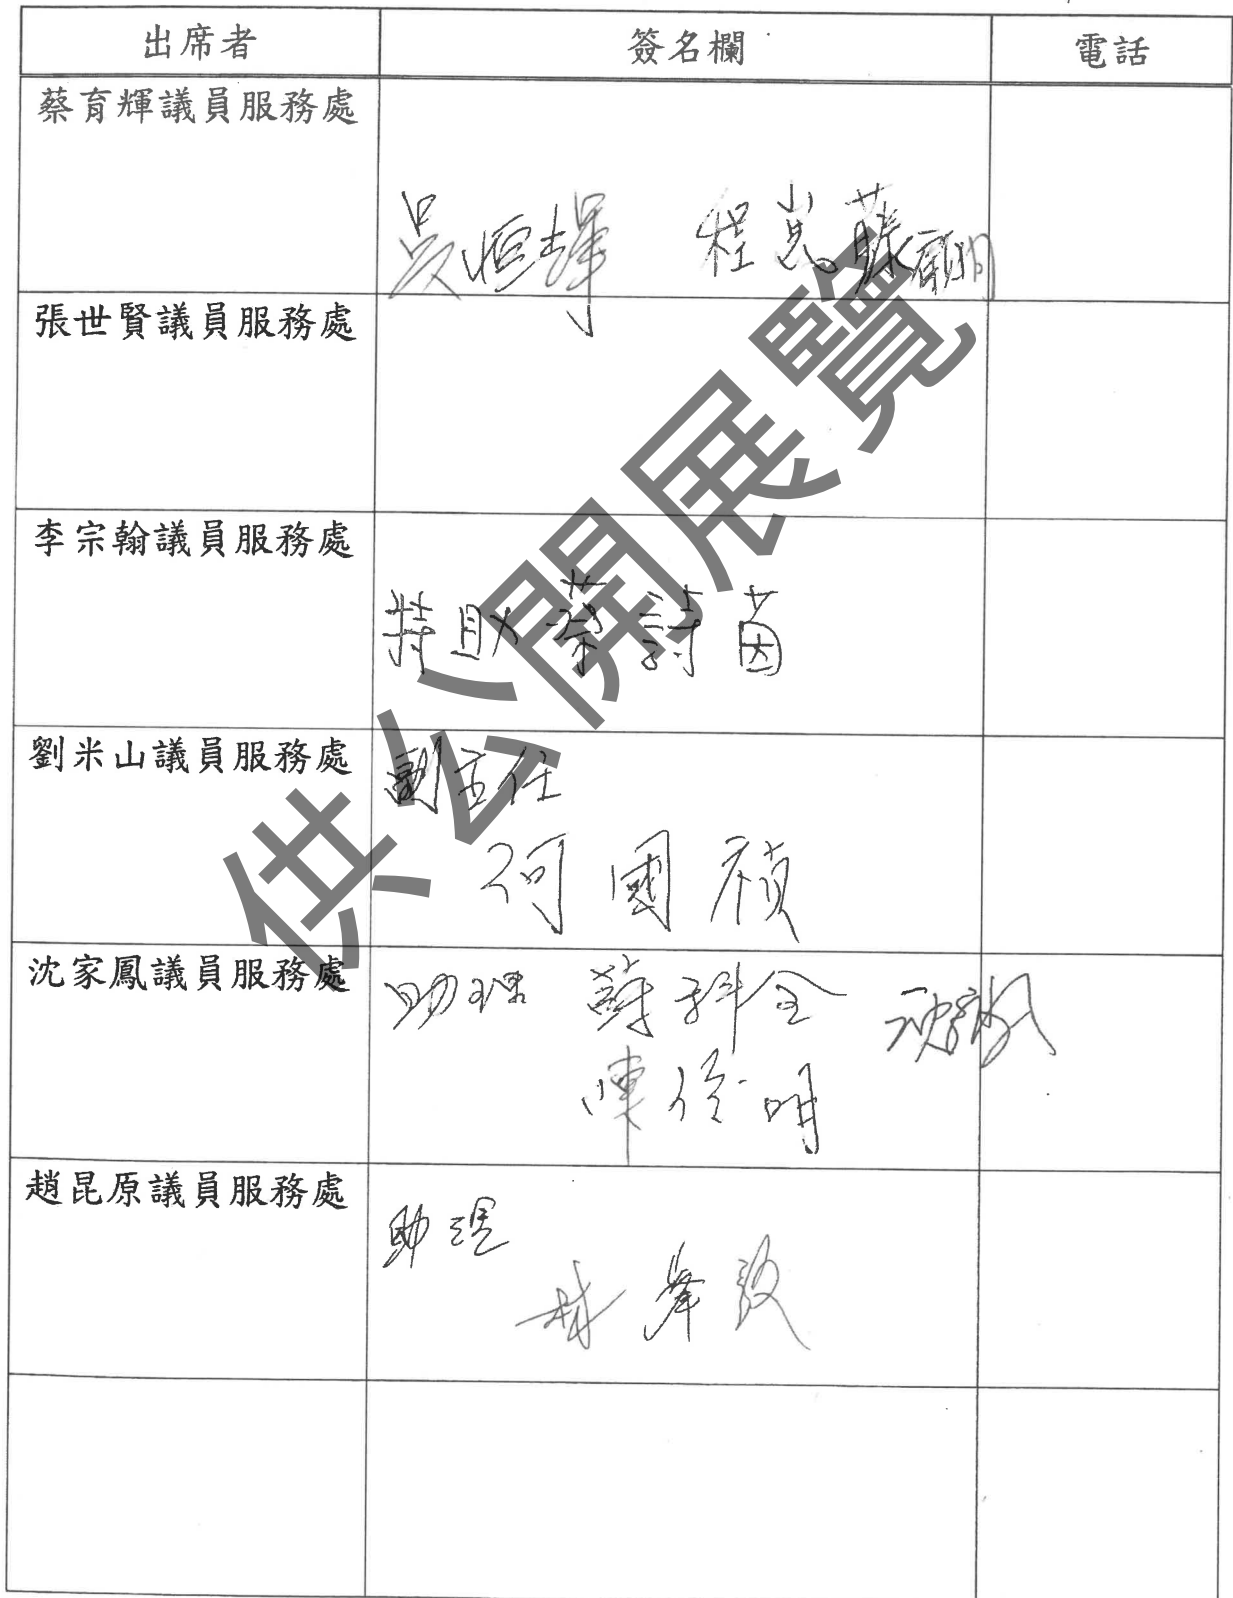 出席者 簽名欄 電話
蔡育輝議員服務處
吳恒輝 程崑藤顧問
張世賢議員服務處
李宗翰議員服務處
特助 蔡詩茵
劉米山議員服務處
副主任
何國禎
沈家鳳議員服務處
助理 蘇科全
陳俊明
趙昆原議員服務處
助理
林肇政
供公開展覽